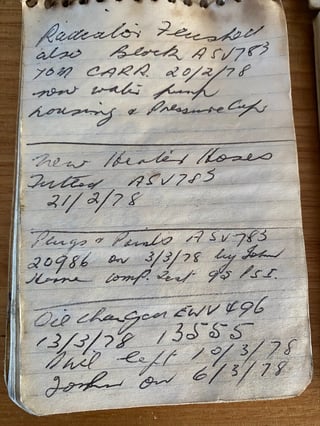 Radiator Flushed
also Block ASV783
Tom CARR 20/2/78
new water pump
housing & Pressure Cap
New Heater Hoses
Fitted ASV783
21/2/78
Plugs & Points ASV783
20986 on 3/3/78 by John
Horne comp. Test 95 P.S.I.
Oil changed EWV496
13/3/78 13555
left 10/3/78
on 6/3/78